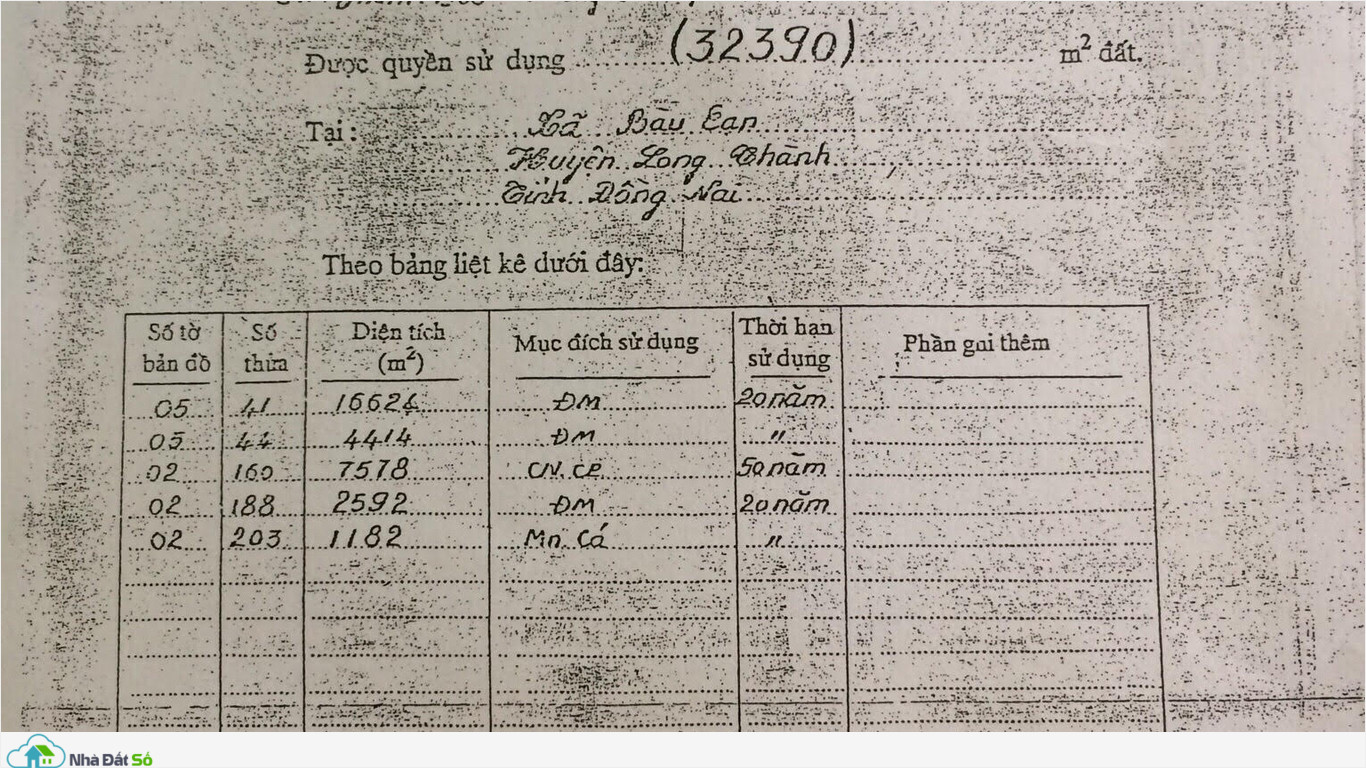 Được quyền sử dụng (32390) m² đất.
Tại : Xã Bàu Can
Huyện Long Thành
Tỉnh Đồng Nai
Theo bảng liệt kê dưới đây:
Số tờ bản đồ Số thửa Diện tích (m²) Mục đích sử dụng Thời hạn sử dụng Phần goi thêm
05 41 16624 ĐM 20 năm
05 44 4414 ĐM "
02 160 7578 CN.CP 50 năm
02 188 2592 ĐM 20 năm
02 203 1182 Mn. Cá "
Nhà Đất Số